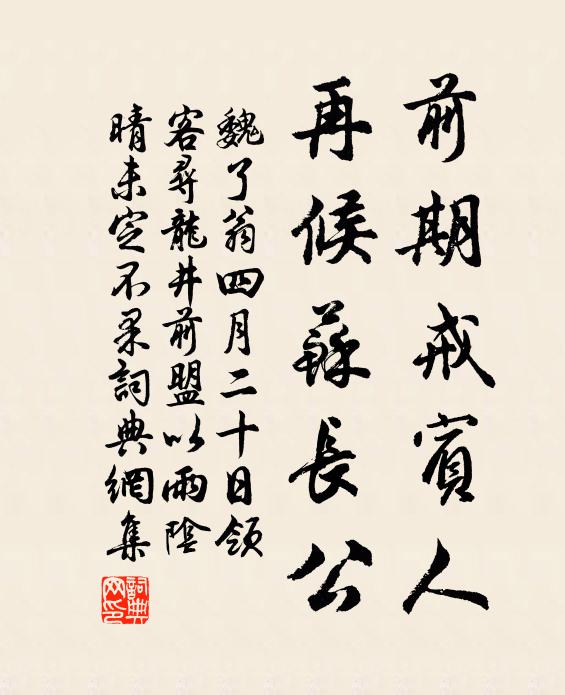 前期戒賓人
再候蘇長公
魏了翁四月二十日領
客尋龍井前盟以雨陰
晴未定不果詞典網集
詞典網印